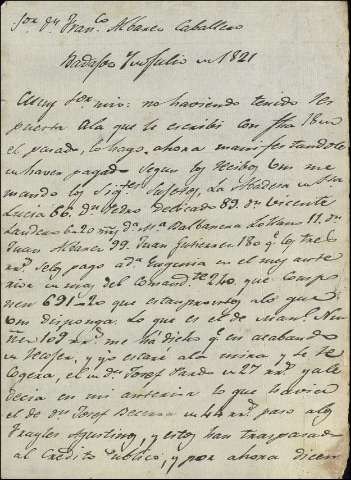 Sor. Dn. Franco. Albarez Caballero
Badajoz 7 Julio de 1821
Muy Sor. mio: no haviendo tenido res
puesta ala que le escribi con fha 18 en
el pasado, lo hago ahora manifestandole
haver pagado segun los Recibos qe me
mando los Sigtes Sujetos, La Madera
Lucia 66. Dn. Pedro Delicado 89. Dn. Vicente
Landero 620 mrs. Da. Ma. Balbanera Lozano 11. Dn.
Juan Albarez 99. Juan Gutierrez 180 qe. los tre
se los pago a Da. Eugenia en el mes ante
rior en mas del Comandte. 240. que compo
nen 691..20 que estan prontos alo que
Vm disponga. Lo que es el de Manl. Nu
ñez 109 rrs. me há dicho qe. en acabando
de Coser, y yo estaré ala mira y se le
cogera, el de Dn. Josef Pardo 27 rrs. ya le
decia en mi anterior lo que havia
el de Dn. Josef Becerra 44 rrs. paso alos
Frayles Agustinos, y estos han traspasado
al Credito Publico, y por ahora dicen